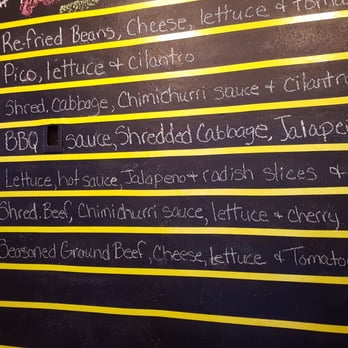 Re-fried Beans, Cheese, lettuce & Toma
Pico, lettuce & cilantro
Shred. Cabbage, Chimichurri sauce & Cilantro
BBQ sauce, Shredded Cabbage, Jalape
Lettuce, hot sauce, Jalapeno & radish slices &
Shred. Beef, Chimichurri sauce, lettuce & cherry
Seasoned Ground Beef, Cheese, lettuce & Tomato